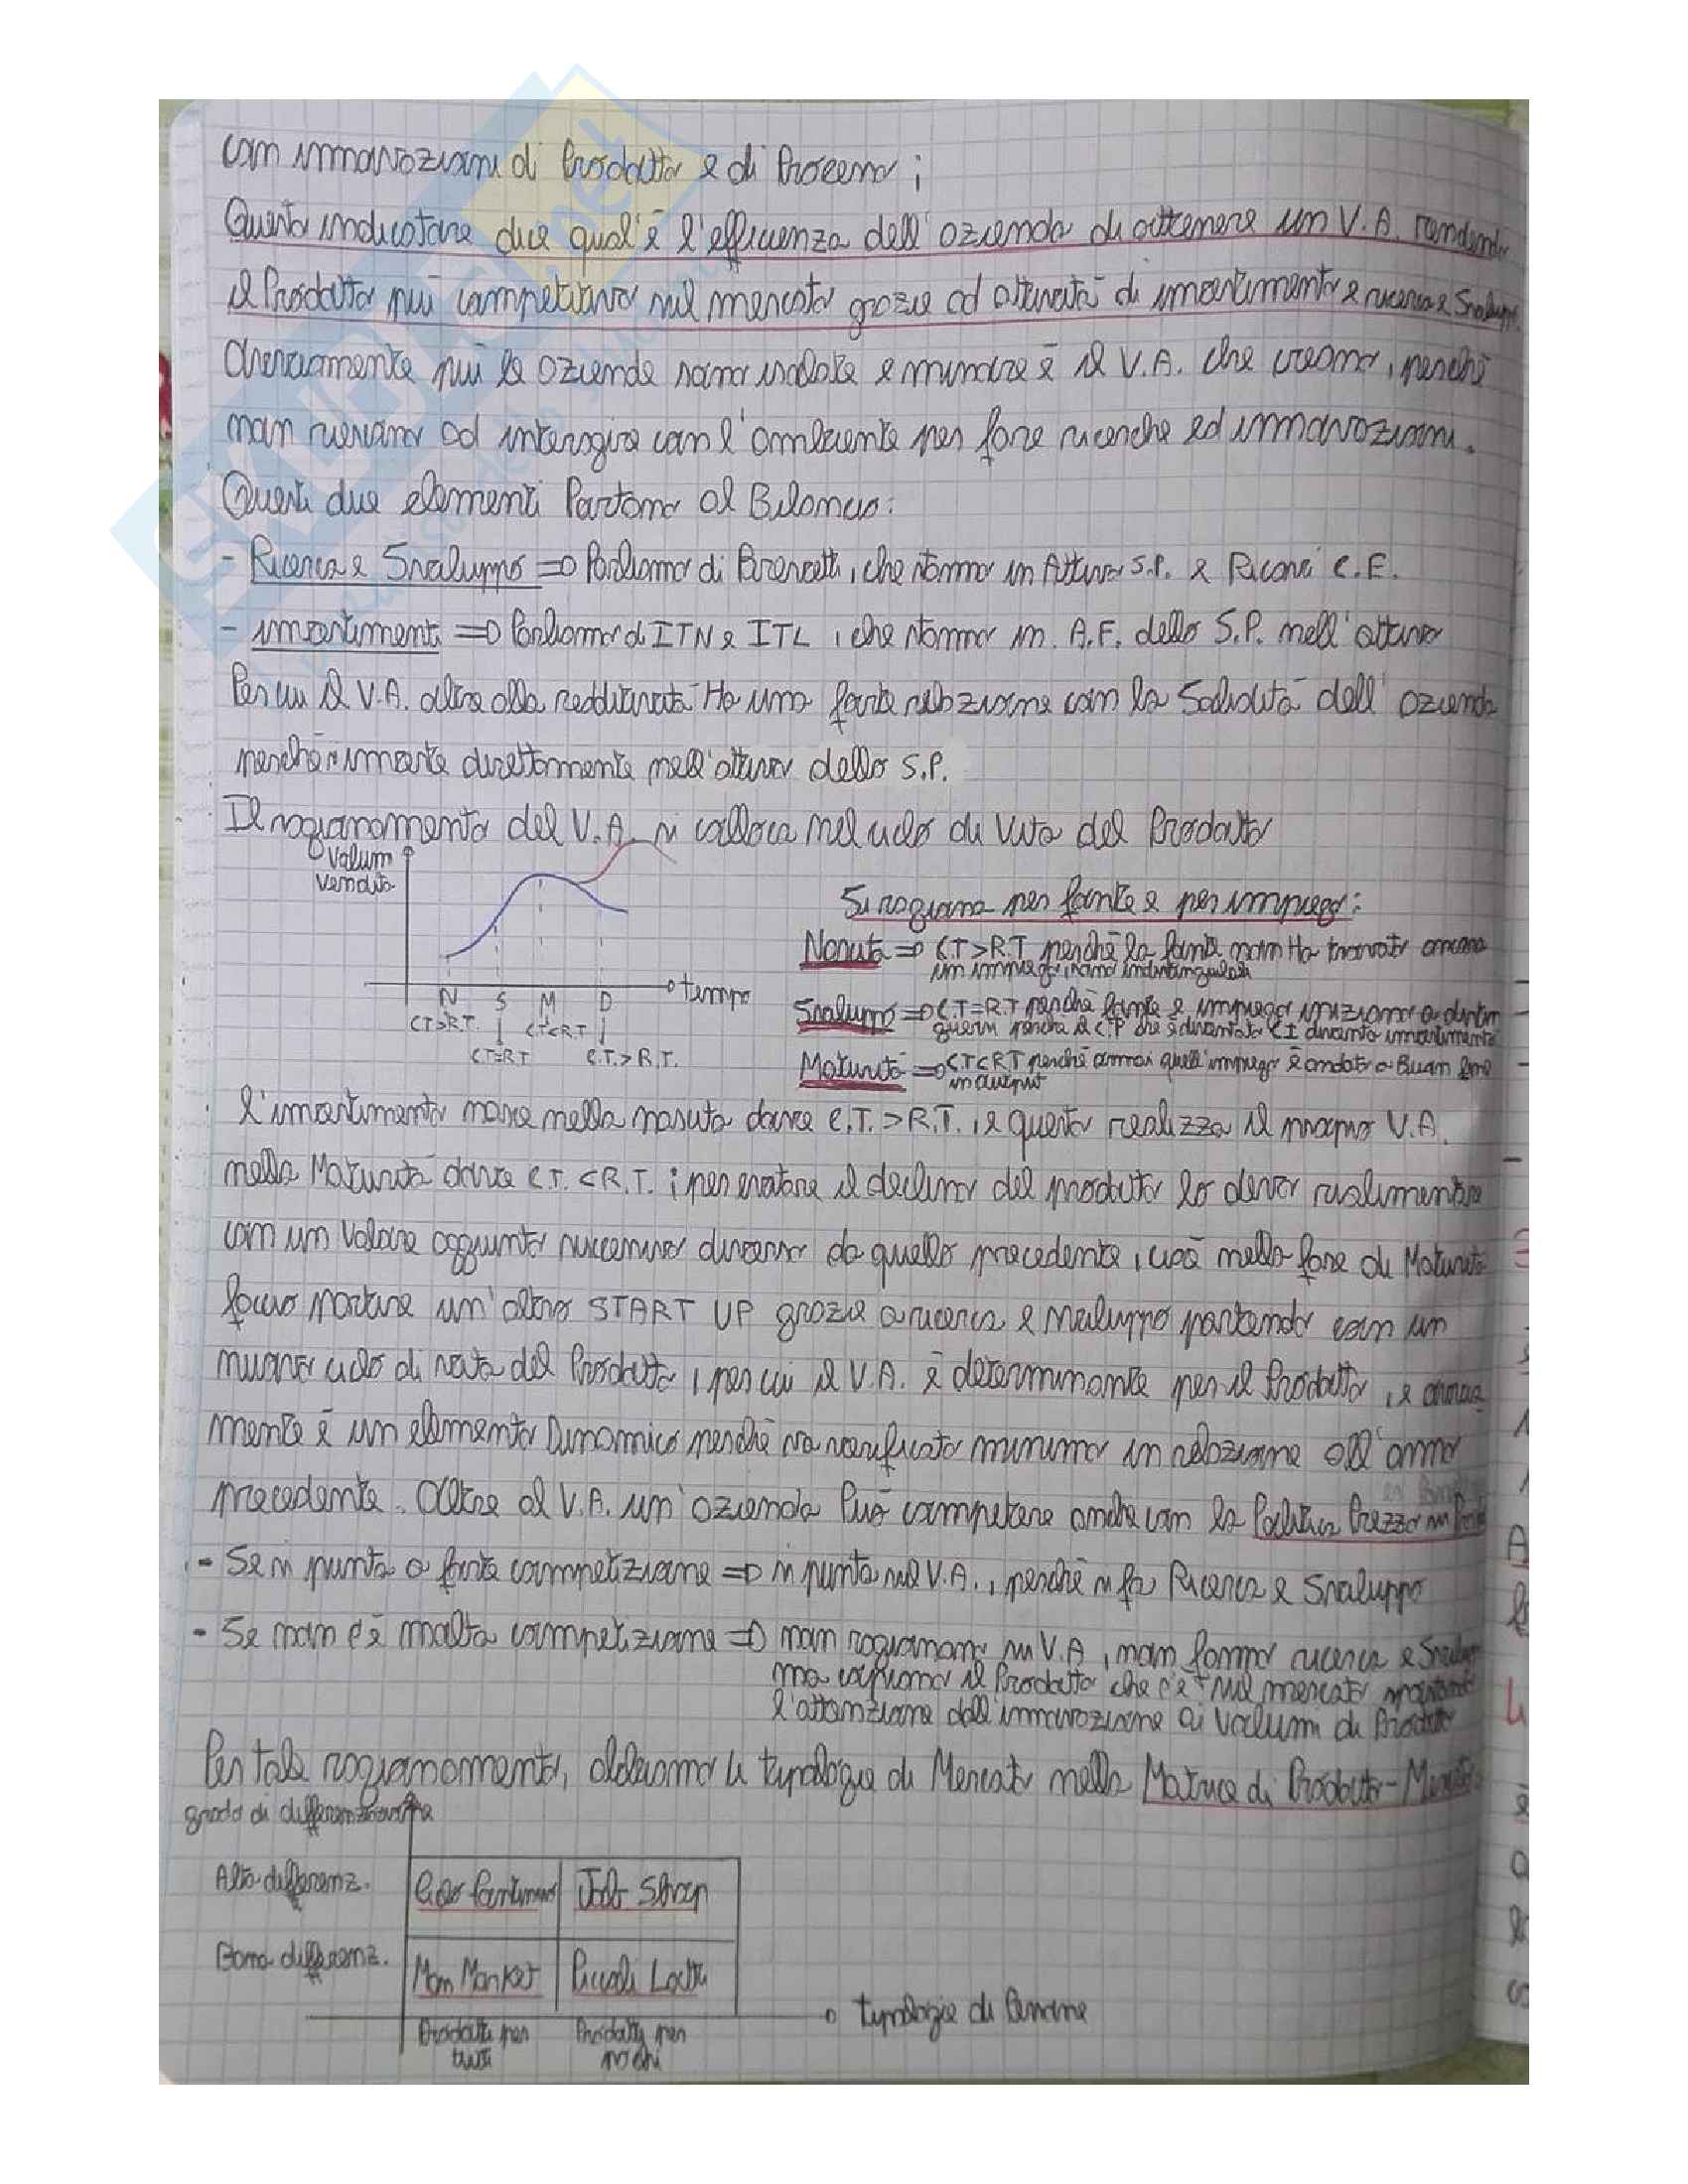 con innovazioni di Prodotto e di Processo ;
Questo indicatore dice qual'è l'efficienza dell'azienda di ottenere un V.A. rendendo
il Prodotto più competitivo sul mercato grazie ad attività di investimento e ricerca e Sviluppo.
Ovviamente più le aziende sono isolate e minore è il V.A. che creano, perchè
non riescono ad interagire con l'ambiente per fare ricerche ed innovazioni.
Questi due elementi Portano al Bilancio:
- Ricerca e Sviluppo => Parliamo di Brevetti, che stanno in Attivo S.P. e Ricavi C.E.
- investimenti => Parliamo di ITN e ITL, che stanno in A.F. dello S.P. nell'attivo
Per cui il V.A. oltre alla redditività Ha una forte relazione con la Solidità dell'azienda
perchè investe direttamente nell'attivo dello S.P.
Il ragionamento del V.A. si colloca nel ciclo di Vita del Prodotto
Volumi
Vendita
tempo
N S M D
CT>R.T. CT<R.T
CT=RT C.T.>R.T.
Si ragiona per fonte e per impiego:
Nascita => C.T>R.T perchè la fonte non Ha trovato ancora
un impiego, sono
Sviluppo => C.T=R.T perchè fonte e impiego iniziano a distin
guersi perchè il C.P che è diventato C.I diventa investimento
Maturità => CT<RT perchè ormai quell'impiego è andato a Buon fine
in output
l'investimento nasce nella nascita dove C.T.>R.T. , e questo realizza il proprio V.A.
nella Maturità dove C.T.<R.T. ; per evitare il declino del prodotto lo devo rialimentare
con un Valore aggiunto successivo diverso da quello precedente, cioè nella fase di Maturità
faccio partire un'altro START UP grazie a ricerca e sviluppo partendo con un
nuovo ciclo di vita del Prodotto, per cui il V.A. è determinante per il Prodotto, e ovvia
mente è un elemento Dinamico perchè va verificato minimo in relazione all'anno
precedente. Oltre al V.A. un'azienda Può competere anche con la Politica Prezzo
- Se si punta a forte competizione => si punta sul V.A., perchè si fa Ricerca e Sviluppo
- Se non c'è molta competizione => non ragionano su V.A, non fanno ricerca e Sviluppo
ma copiano il Prodotto che c'è sul mercato spostando
l'attenzione dall'innovazione ai Volumi di Prodotto
Per tale ragionamento, abbiamo 4 tipologie di Mercato nella Matrice di Prodotto-Mercato
grado di differenziazione
Alta differenz. Ciclo Continuo Job Shop
Bassa differenz. Mass Market Piccoli Lotti
tipologie di Persone
Prodotti per Prodotti per
tutti pochi